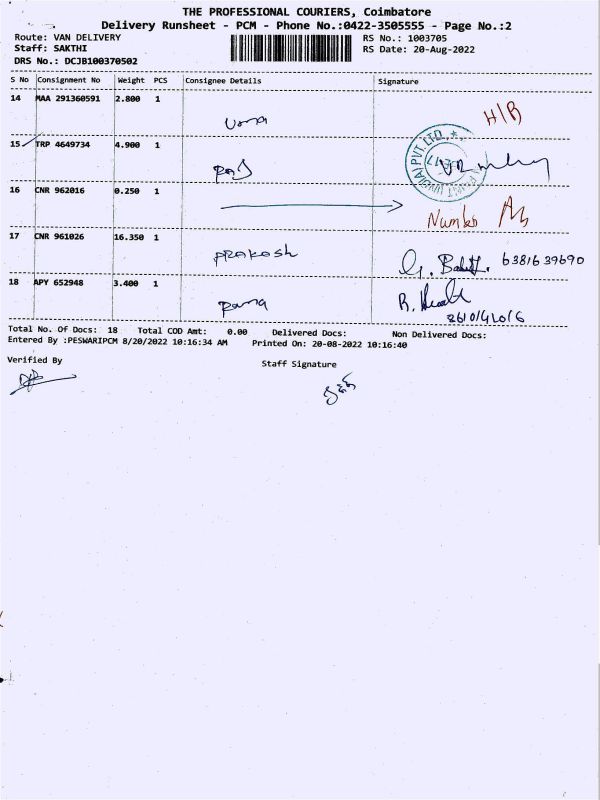 THE PROFESSIONAL COURIERS, Coimbatore
Delivery Runsheet - PCM - Phone No.:0422-3505555 - Page No.:2
Route: VAN DELIVERY RS No.: 1003705
Staff: SAKTHI RS Date: 20-Aug-2022
DRS No.: DCJB100370502
S No Consignment No Weight PCS Consignee Details Signature
14 MAA 291360591 2.800 1
Uma H/R
15 TRP 4649734 4.900 1
PVT. LTD. *
16 CNR 962016 0.250 1
17 CNR 961026 16.350 1
PRAKASH 6381639690
18 APY 652948 3.400 1
Rama
Total No. Of Docs: 18 Total COD Amt: 0.00 Delivered Docs: Non Delivered Docs:
Entered By :PESWARIPCM 8/20/2022 10:16:34 AM Printed On: 20-08-2022 10:16:40
Verified By
Staff Signature